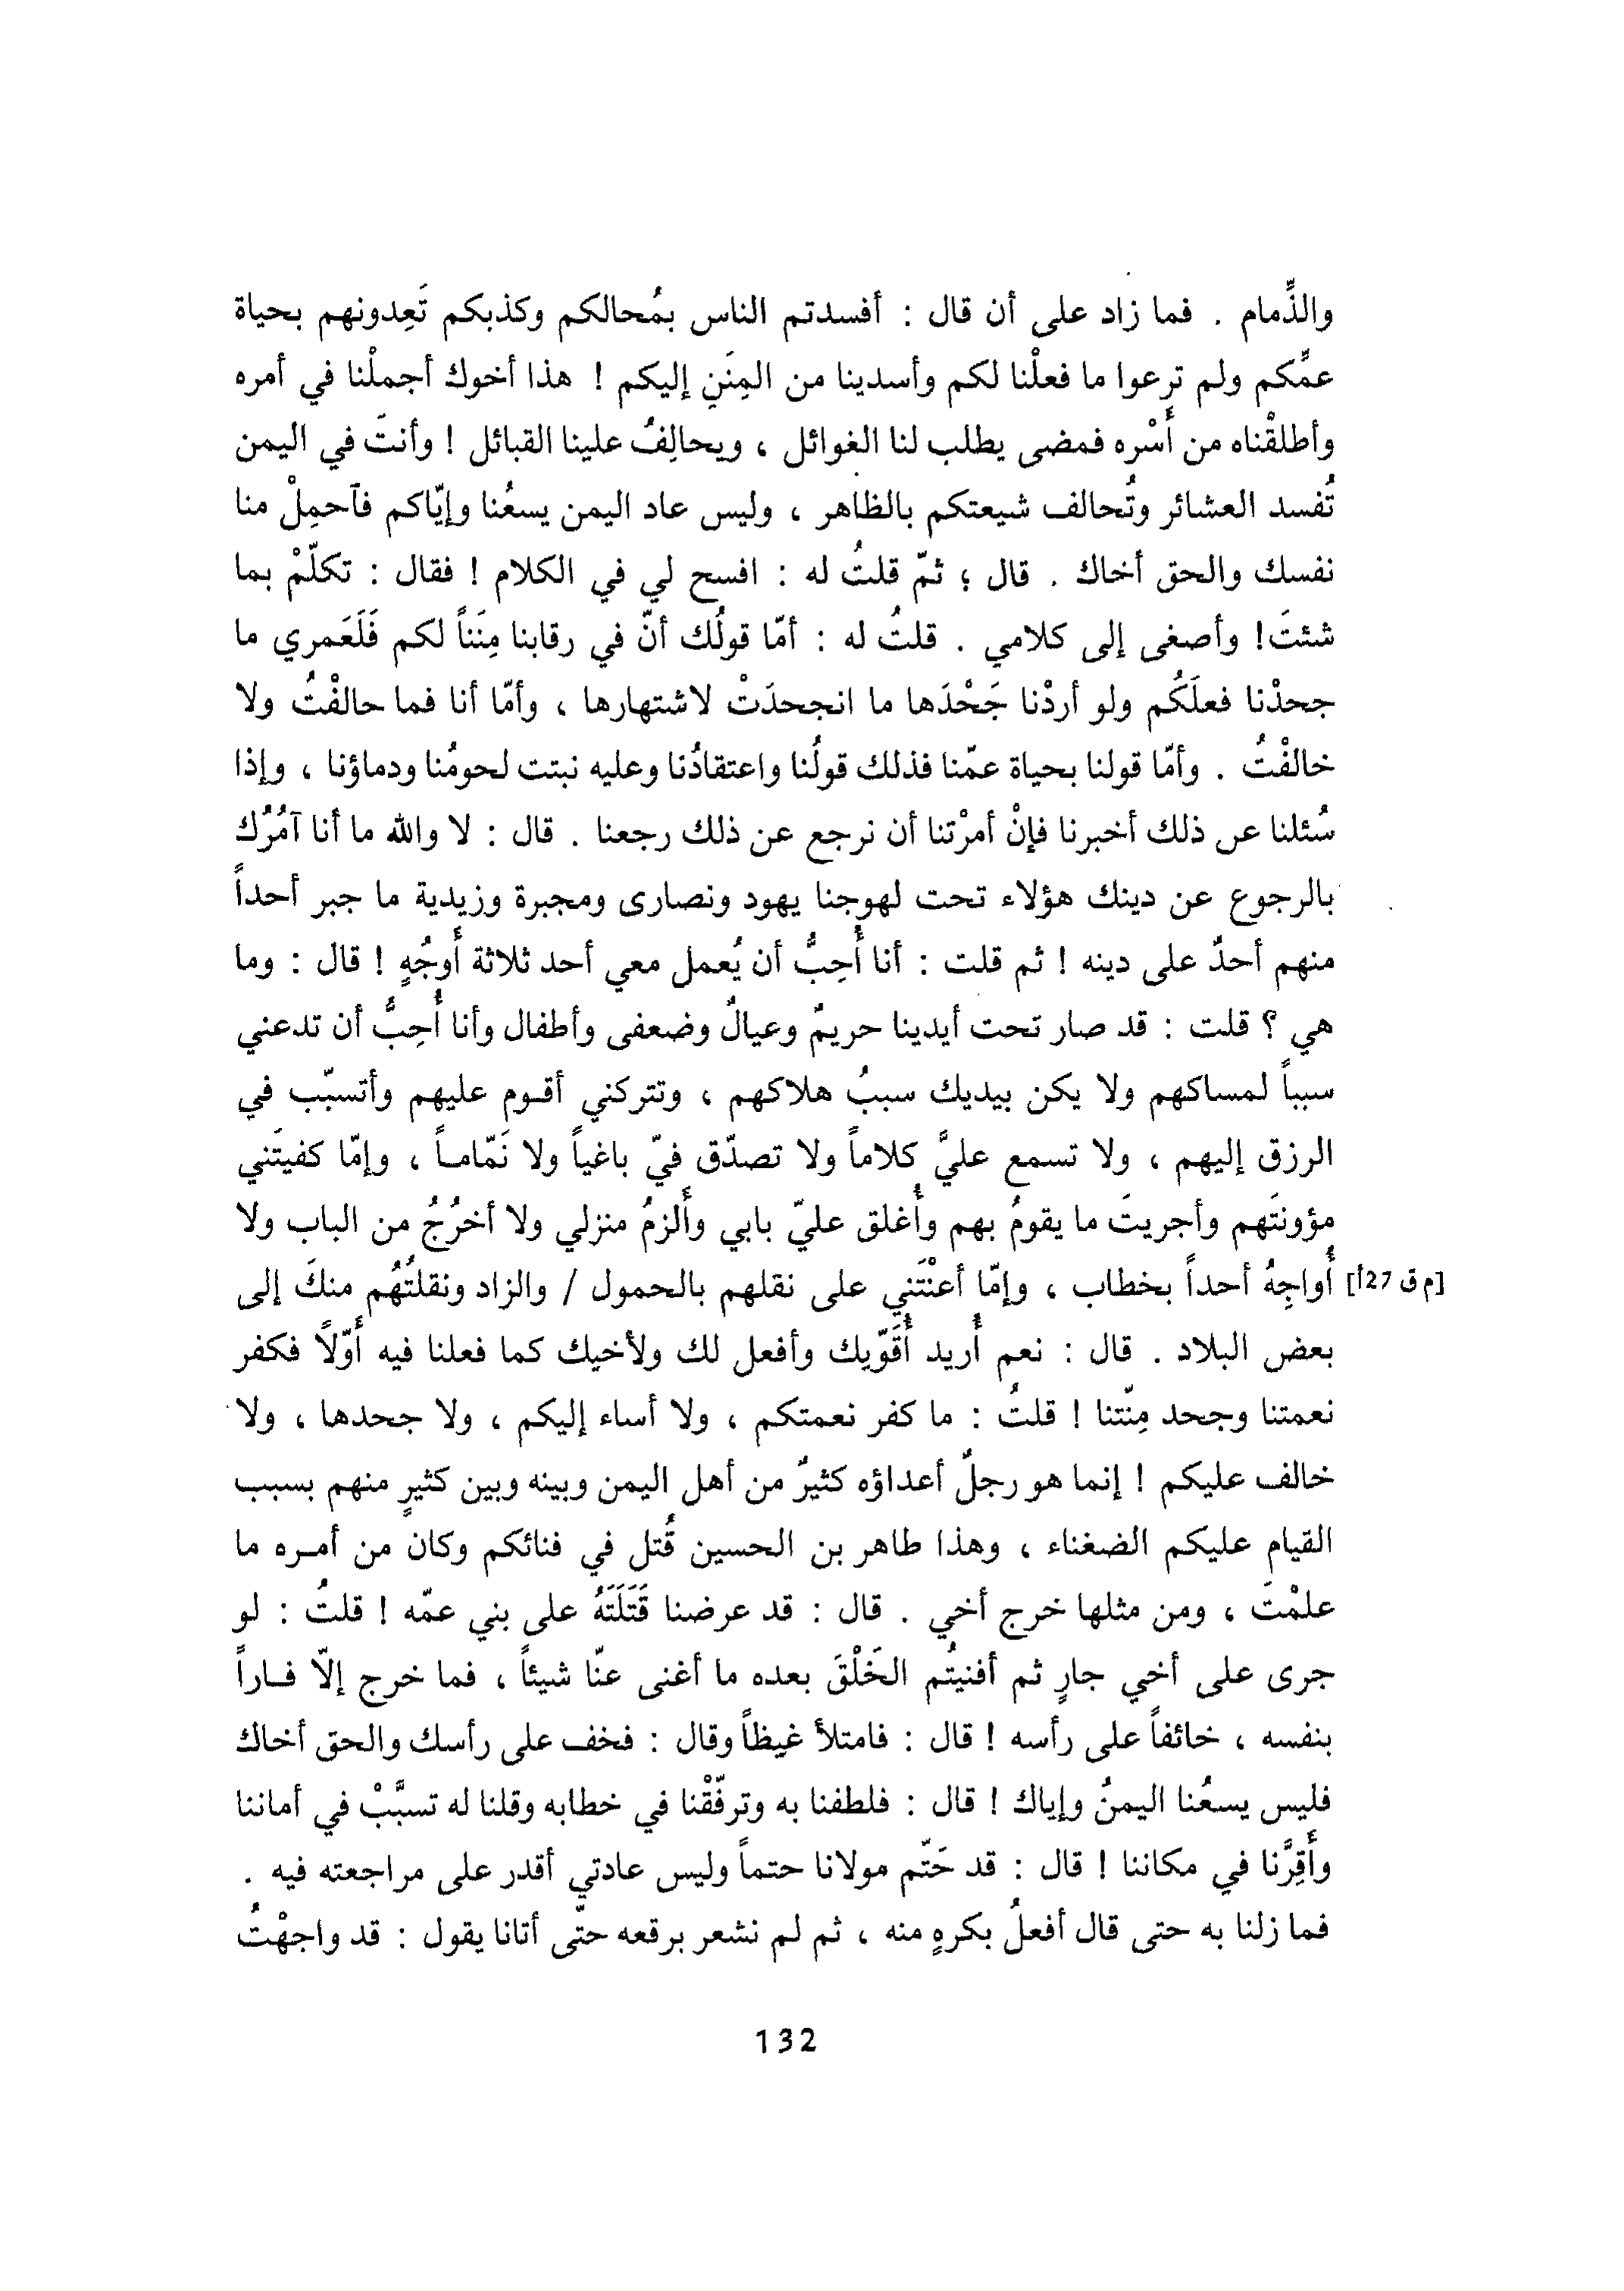 والذِّمام . فما زاد على أن قال : أفسدتم الناس بمُحالكم وكذبكم تَعِدونهم بحياة
عمِّكم ولم ترعوا ما فعلْنا لكم وأسدينا من المِنَنِ إليكم ! هذا أخوك أجملْنا في أمره
وأطلقْناه من أَسْره فمضى يطلب لنا الغوائل ، ويحالِفُ علينا القبائل ! وأنتَ في اليمن
تُفسد العشائر وتُحالف شيعتكم بالظاهر ، وليس عاد اليمن يسعُنا وإيّاكم فآحمِلْ منا
نفسك والحق أخاك . قال ؛ ثمّ قلتُ له : افسح لي في الكلام ! فقال : تكلّمْ بما
شئتَ! وأصغى إلى كلامي . قلتُ له : أمّا قولُك أنّ في رقابنا مِنَناً لكم فَلَعَمري ما
جحدْنا فعلَكُم ولو أردْنا جَحْدَها ما انجحدَتْ لاشتهارها ، وأمّا أنا فما حالفْتُ ولا
خالفْتُ . وأمّا قولنا بحياة عمّنا فذلك قولُنا واعتقادُنا وعليه نبتت لحومُنا ودماؤنا ، وإذا
سُئلنا عن ذلك أخبرنا فإنْ أمرْتنا أن نرجع عن ذلك رجعنا . قال : لا والله ما أنا آمُرُك
بالرجوع عن دينك هؤلاء تحت لهوجنا يهود ونصارى ومجبرة وزيدية ما جبر أحداً
منهم أحدٌ على دينه ! ثم قلت : أنا أُحِبُّ أن يُعمل معي أحد ثلاثة أَوجُهٍ ! قال : وما
هي ؟ قلت : قد صار تحت أيدينا حريمٌ وعيالٌ وضعفى وأطفال وأنا أُحِبُّ أن تدعني
سبباً لمساكهم ولا يكن بيديك سببُ هلاكهم ، وتتركني أقوم عليهم وأتسبّب في
الرزق إليهم ، ولا تسمع عليَّ كلاماً ولا تصدّق فيّ باغياً ولا نَمّاماً ، وإمّا كفيتَني
مؤونتَهم وأجريتَ ما يقومُ بهم وأُغلق عليّ بابي وأَلزمُ منزلي ولا أخرُجُ من الباب ولا
أُواجِهُ أحداً بخطاب ، وإمّا أعنْتَني على نقلهم بالحمول / والزاد ونقلتُهُم منكَ إلى [م ق 27أ]
بعض البلاد . قال : نعم أُريد أُقَوّيك وأفعل لك ولأخيك كما فعلنا فيه أَوّلاً فكفر
نعمتنا وجحد مِنّتنا ! قلتُ : ما كفر نعمتكم ، ولا أساء إليكم ، ولا جحدها ، ولا
خالف عليكم ! إنما هو رجلٌ أعداؤه كثيرٌ من أهل اليمن وبينه وبين كثيرٍ منهم بسبب
القيام عليكم الضغناء ، وهذا طاهر بن الحسين قُتل في فنائكم وكان من أمره ما
علمْتَ ، ومن مثلها خرج أخي . قال : قد عرضنا قَتَلَتَهُ على بني عمّه ! قلتُ : لو
جرى على أخي جارٍ ثم أفنيتُم الخَلْقَ بعده ما أغنى عنّا شيئاً ، فما خرج إلاّ فاراً
بنفسه ، خائفاً على رأسه ! قال : فامتلأ غيظاً وقال : فخف على رأسك والحق أخاك
فليس يسعُنا اليمنُ وإياك ! قال : فلطفنا به وترفّقْنا في خطابه وقلنا له تسبَّبْ في أماننا
وأَقِرَّنا في مكاننا ! قال : قد حَتّم مولانا حتماً وليس عادتي أقدر على مراجعته فيه .
فما زلنا به حتى قال أفعلُ بكرهٍ منه ، ثم لم نشعر برقعه حتّى أتانا يقول : قد واجهْتُ
132